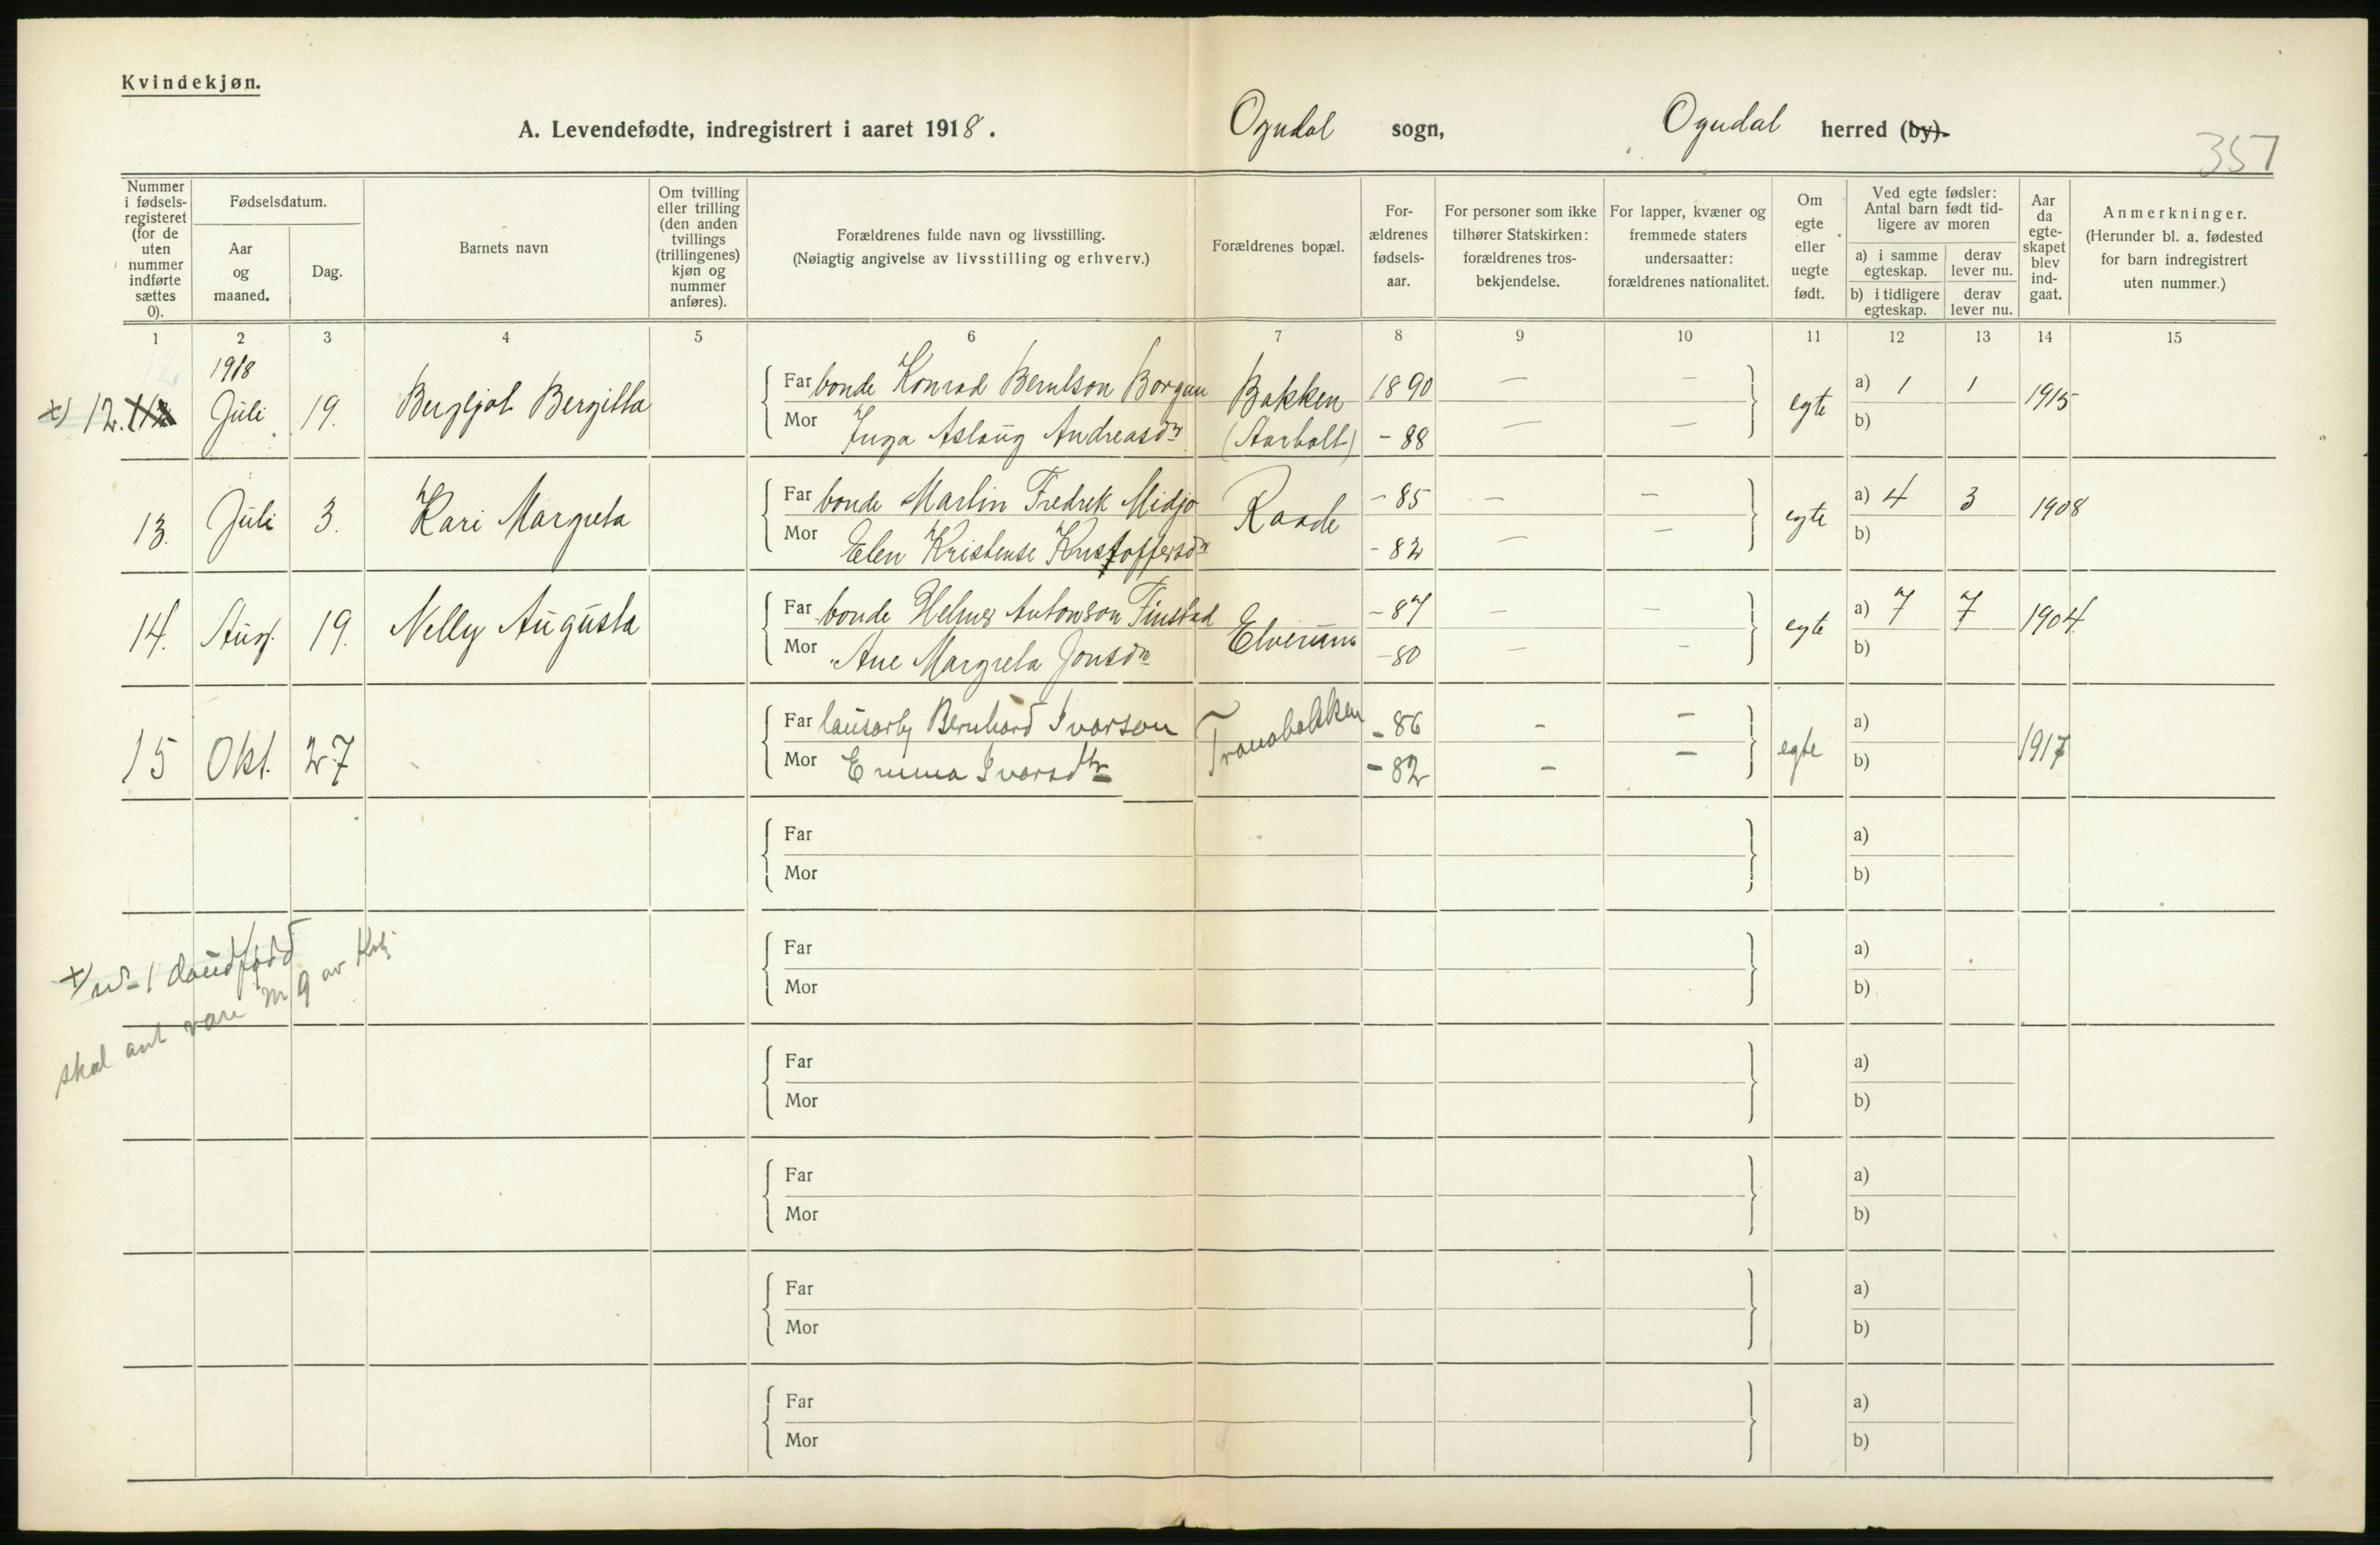 Kvindekjøn.
A. Levendefødte, indregistrert i aaret 1918. Ogndal sogn, Ogndal herred (by).
357
Nummer i fødselsregisteret (for de uten nummer indførte sættes 0).
Fødselsdatum.
Aar og maaned.
Dag.
Barnets navn
Om tvilling eller trilling (den anden tvillings (trillingenes) kjøn og nummer anføres).
Forældrenes fulde navn og livsstilling.
(Nøiagtig angivelse av livsstilling og erhverv.)
Forældrenes bopæl.
Forældrenes fødselsaar.
For personer som ikke tilhører Statskirken: forældrenes trosbekjendelse.
For lapper, kvæner og fremmede staters undersaatter: forældrenes nationalitet.
Om egte eller uegte født.
Ved egte fødsler: Antal barn født tidligere av moren
a) i samme egteskap. derav lever nu.
b) i tidligere egteskap. derav lever nu.
Aar da egteskapet blev indgaat.
Anmerkninger.
(Herunder bl. a. fødested for barn indregistrert uten nummer.)
1 2 3 4 5 6 7 8 9 10 11 12 13 14 15
1918
x) 12. Juli 19. Bergljot Bergitta Far bonde Konrad Berntson Borgan Bakken 1890 — — egte a) 1 1 1915
Mor Inga Aslaug Andreasdr (Aarholt) - 88 — — b)
13. Juli 3. Kari Margreta Far bonde Martin Fredrek Midjo Raade - 85 — — egte a) 4 3 1908
Mor Elen Kristense Kristoffersdr - 82 — — b)
14. Aug. 19. Nelly Augusta Far bonde Helmer Antonson Finstad Elverum - 87 — — egte a) 7 7 1904.
Mor Ane Margreta Jonsdr - 80 — — b)
15 Okt. 27 Far lausarb Bernhard Ivarson Tranabakken - 86 - — egte a) 1917
Mor Emma Ivarsdtr - 82 - — b)
Far a)
Mor b)
x) nr 1 daudfødd
Far a)
Mor b)
skal ant vare nr 9 av
Far a)
Mor b)
Far a)
Mor b)
Far a)
Mor b)
Far a)
Mor b)